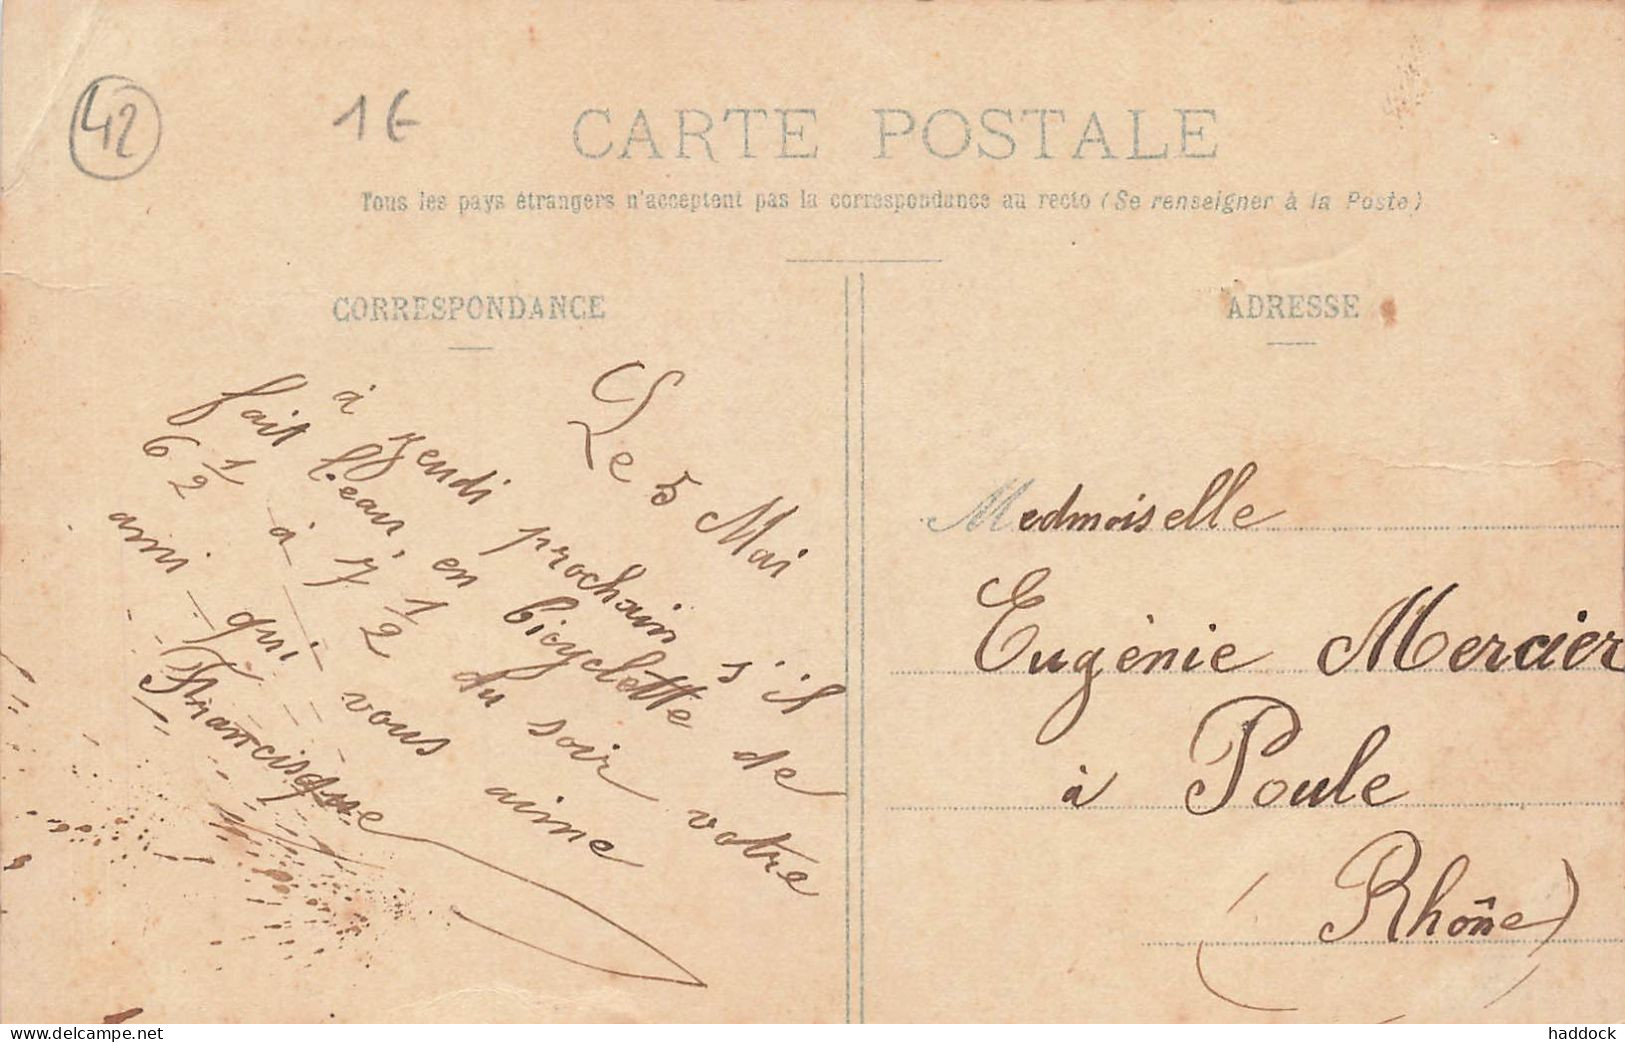 42
1€
CARTE POSTALE
Tous les pays étrangers n'acceptent pas la correspondance au recto (Se renseigner à la Poste)
CORRESPONDANCE
Le 5 Mai
à jeudi prochain s'il
fait beau, en bicyclette de
6 1/2 à 7 1/2 du soir votre
ami qui vous aime
Francisque
ADRESSE
Medmoiselle
Eugènie Mercier
à Poule
(Rhône)
www.delcampe.net
haddock